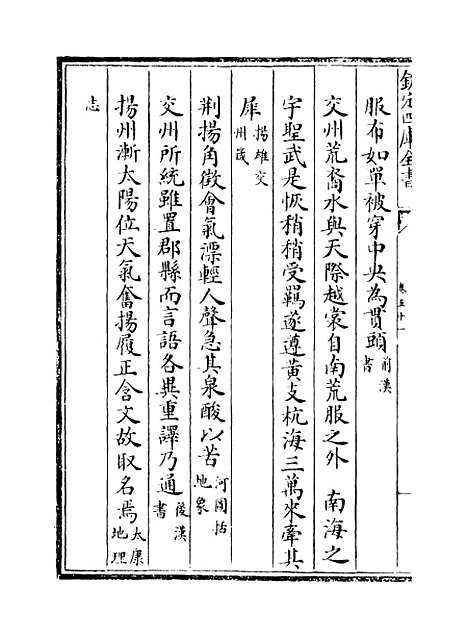 欽定四庫全書
卷五十一
服布如單被穿中央為貫頭前漢書
交州荒裔水與天際越裳自南荒服之外　南海之
宇聖武是恢稍稍受羈遂遵黃支杭海三萬來牽其
犀揚雄交州箴
荆揚角徵會氣漂輕人聲急其泉酸以苦河圖括地象
交州所統雖置郡縣而言語各異重譯乃通後漢書
揚州漸太陽位天氣奮揚履正含文故取名焉太康地理
志